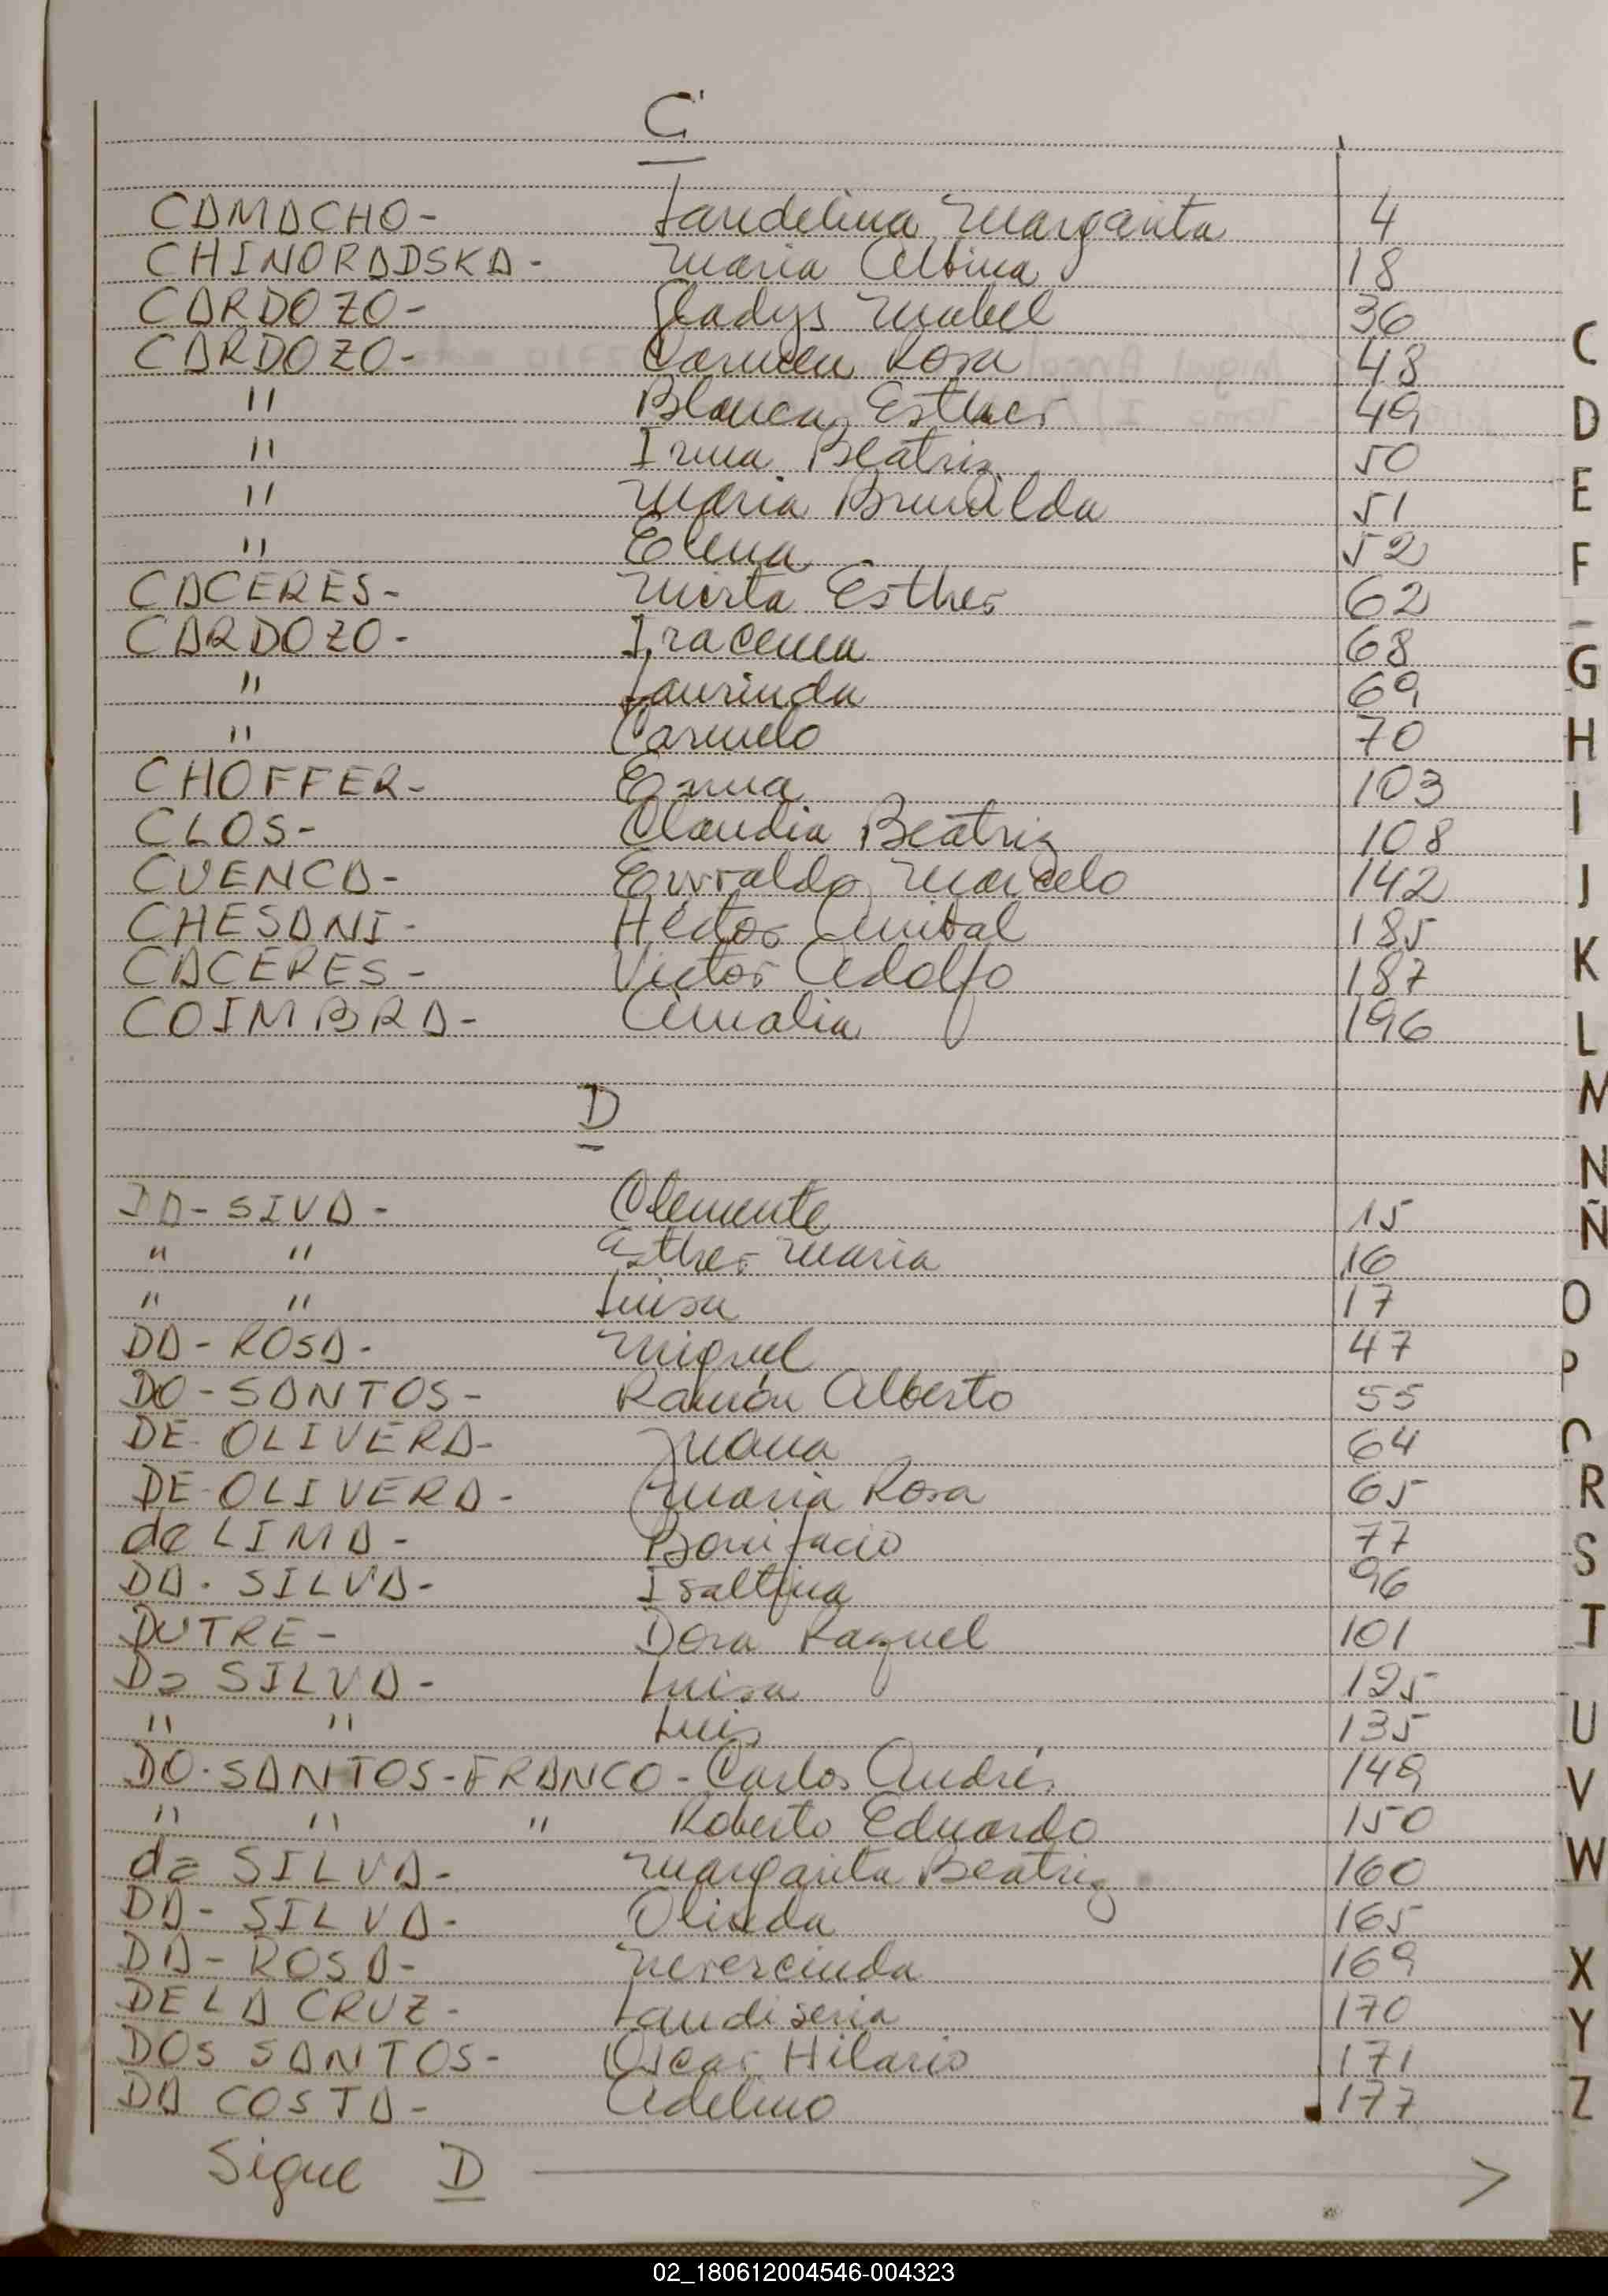 C
CAMACHO- Laudelina Margarita 4
CHINORADSKA- Maria Albina 18
CARDOZO- Gladys Mabel 36
CARDOZO- Carmen Rosa 48
" Blanca Esther 49
" Irma Beatriz 50
" Maria Brunilda 51
" Elena 52
CACERES- Mirta Esther 62
CARDOZO- Iracema 68
" Laurinda 69
" Carmelo 70
CHOFFER- Erma 103
CLOS- Claudia Beatriz 108
CUENCA- Marcelo 142
CHESANI- Hector Anibal 185
CACERES- Victor Adolfo 187
COIMBRA- Amalia 196
D
DA-SIVA- Clemente 15
" " Esther Maria 16
" " Luisa 17
DA-ROSA- Miguel 47
DO-SANTOS- Ramón Alberto 55
DE-OLIVERA- Juana 64
DE-OLIVERA- Maria Rosa 65
de LIMA- Bonifacio 77
DA-SILVA- Isaltina 96
DUTRE- Dora Raquel 101
Da SILVA- Luisa 125
" " Luis 135
DO-SANTOS-FRANCO- Carlos Andrés 149
" " " Roberto Eduardo 150
da SILVA- Margarita Beatriz 160
DA-SILVA- Olinda 165
DA-ROSA- 169
DE LA CRUZ- 170
DOS SANTOS- Oscar Hilario 171
DA COSTA- Adelino 177
Sigue D >
C
D
E
F
G
H
I
J
K
L
M
N
Ñ
O
P
R
S
T
U
V
W
X
Y
Z
02_180612004546-004323